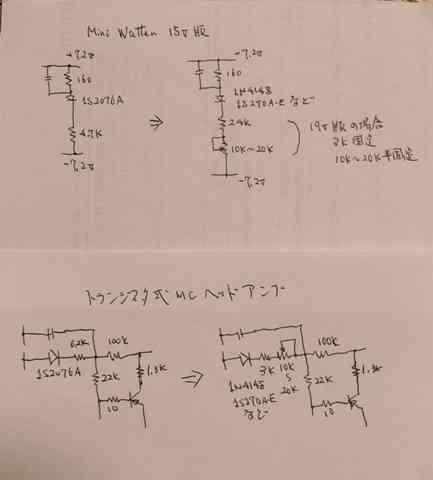 Mini Watter 15V版
+7.2V
160
1S2076A
4.7K
-7.2V
⇒
-7.2V
160
1N4148
1S270A-E など
2.4K
10K~20K
-7.2V
19V版の場合
3K固定
10K~20K半固定
トランジスタ式MCヘッドアンプ
6.2K
100K
1S2076A
22K
1.8K
10
⇒
3K
10K
~
20K
1N4148
1S270A-E
など
100K
22K
1.8K
10